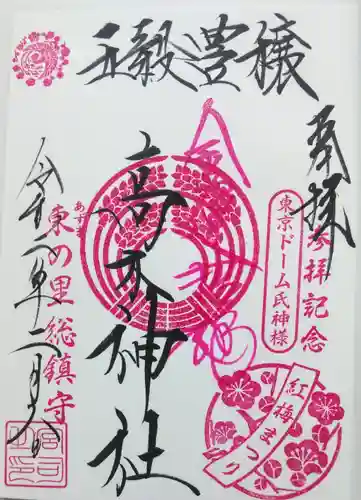 五穀豊穣
奉拝
参拝記念
東京ドーム氏神様
高木神社
あずま
東の里総鎮守
令和二年二月
紅梅まつり